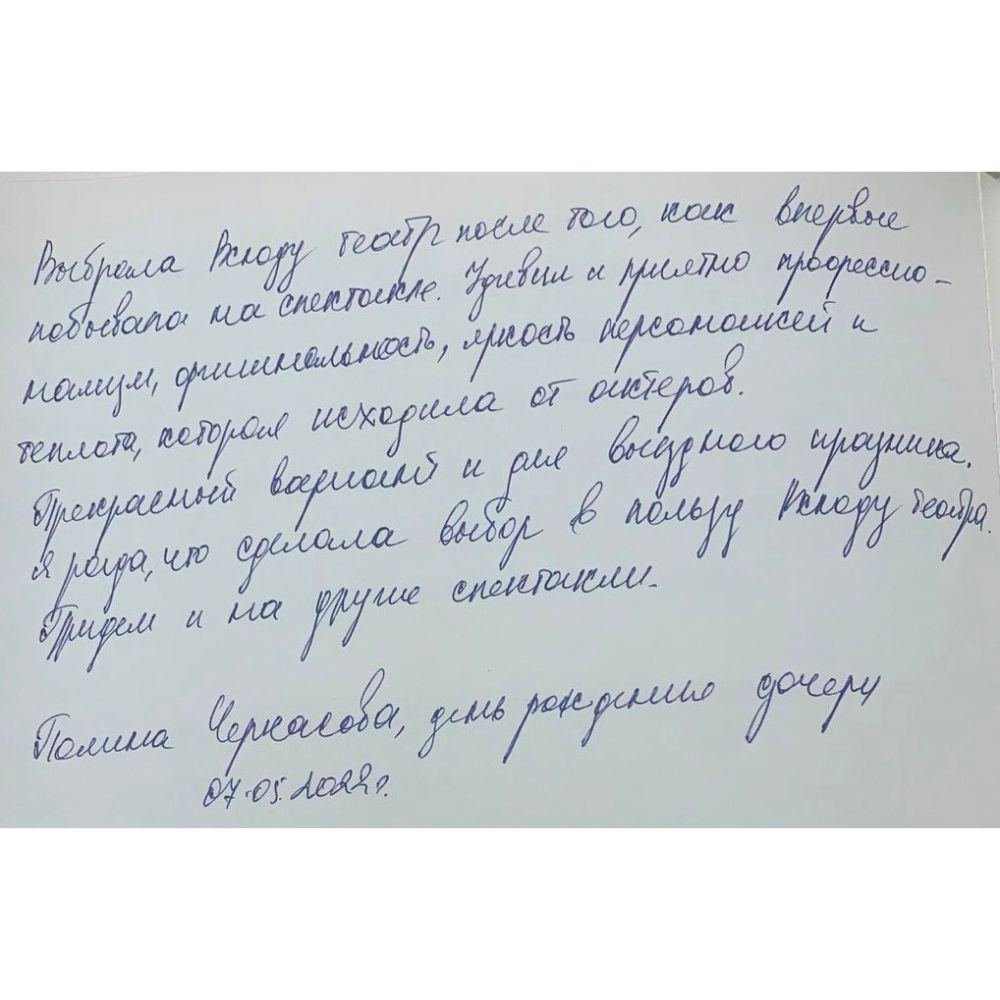 Выбрала Входу театр после того, как впервые
побывала на спектакле. Удивил и приятно профессио-
нализм, оригинальность, яркость персонажей и
теплота, которая исходила от актеров.
Прекрасный вариант и для выездного праздника.
Я рада, что сделала выбор в пользу Входу театра.
Придем и на другие спектакли.
Полина Черкасова, день рождение дочери
07.05.2022г.